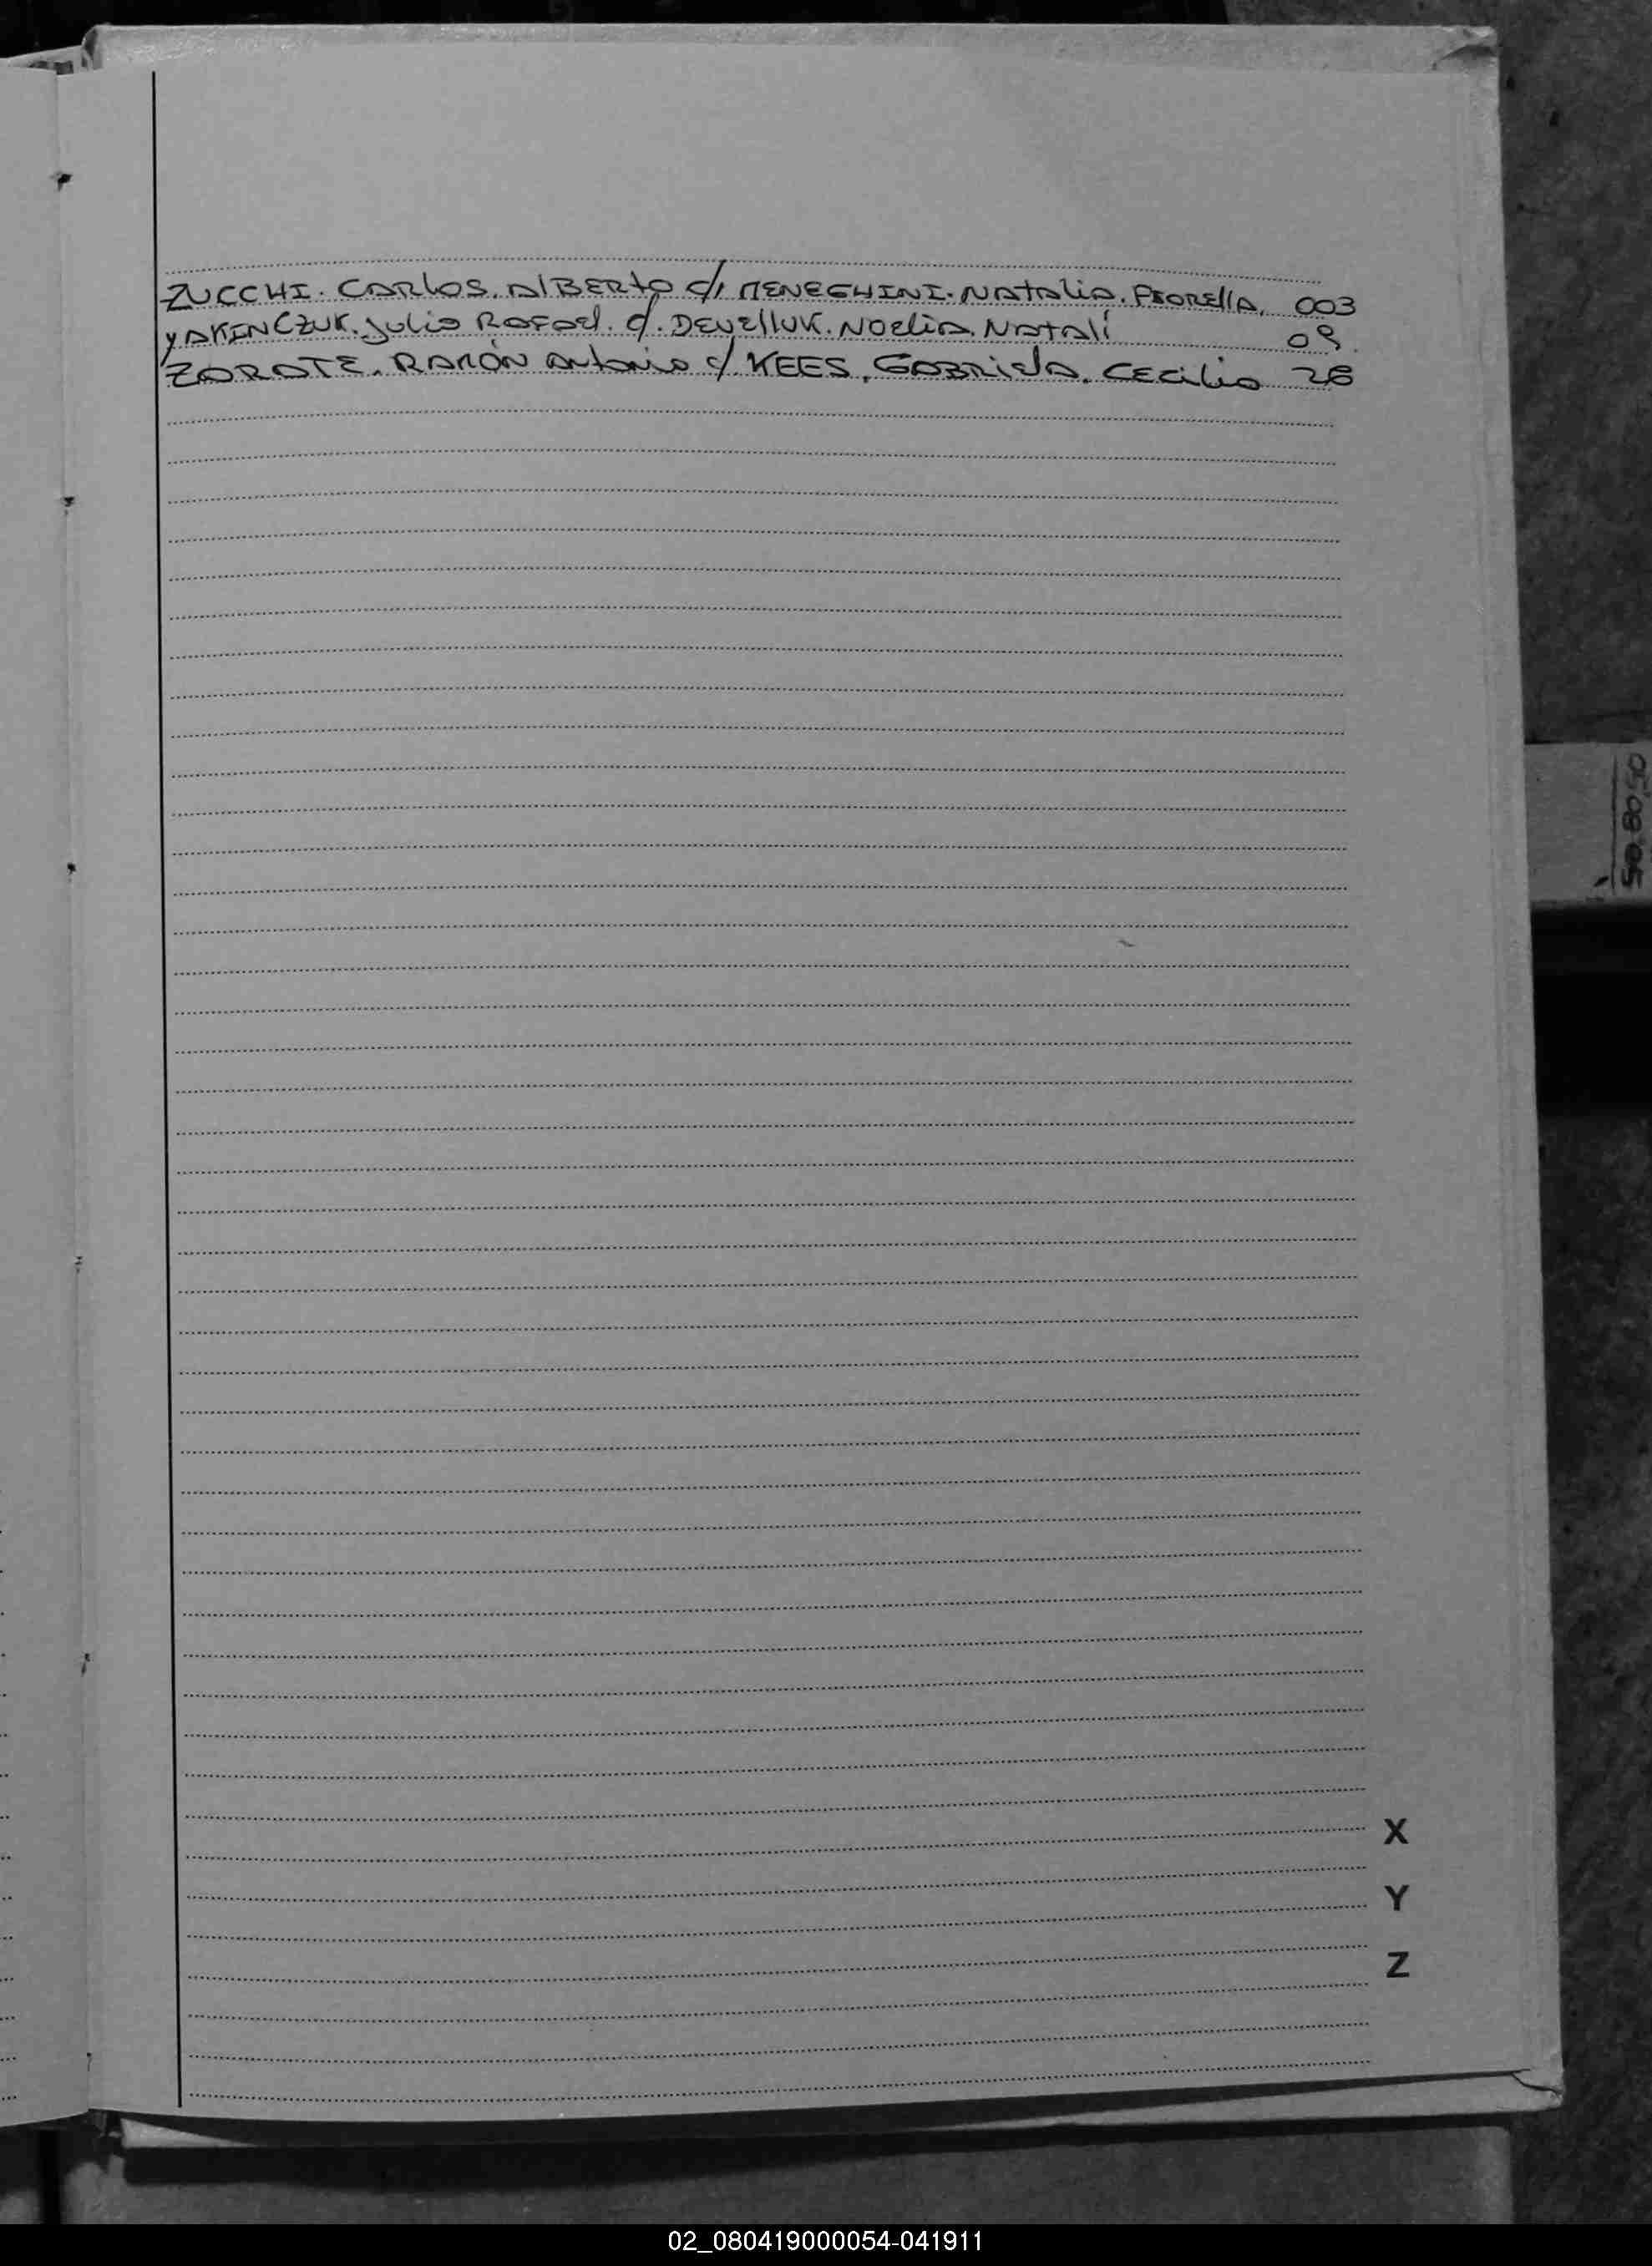 ZUCCHI. CARlos. AlBERto c/ MENEGHINI. NAtAliA. FIOREllA. 003
YAKINCZUK. Julio RAFAel. c/. DEVEllUK. NOEliA. NAtAlí 09.
ZARATE. RAMÓN Antonio c/. KEES. GABRiElA. CECiliA 28
05'08'05
X
Y
Z
02_080419000054-041911